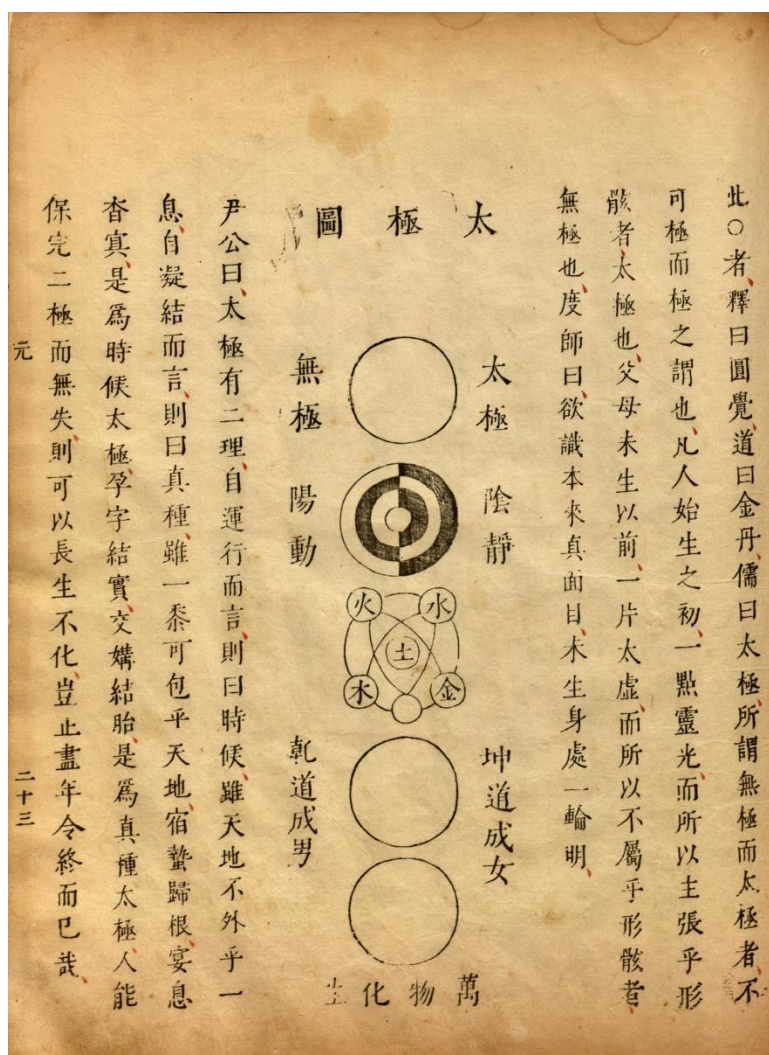 此○者、釋曰圓覺、道曰金丹、儒曰太極、所謂無極而太極者、不
可極而極之謂也、凡人始生之初、一點靈光、而所以主張乎形
骸者、太極也、父母未生以前、一片太虛、而所以不屬乎形骸者、
無極也、度師曰、欲識本來真面目、未生身處一輪明、
太極圖
太極
無極
陰靜
陽動
水
火
土
金
木
坤道成女
乾道成男
萬物化生
尹公曰、太極有二理、自運行而言、則曰時候、雖天地不外乎一
息、自凝結而言、則曰真種、雖一黍可包乎天地、宿蟄歸根、宴息
杳冥、是爲時候太極、孕字結實、交媾結胎、是爲真種太極、人能
保完二極而無失、則可以長生不化、豈止盡年令終而已哉、
元
二十三